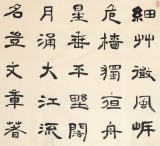 細艸微風岸
危檣獨亱舟
星垂平野闊
月涌大江流
名豈文章著